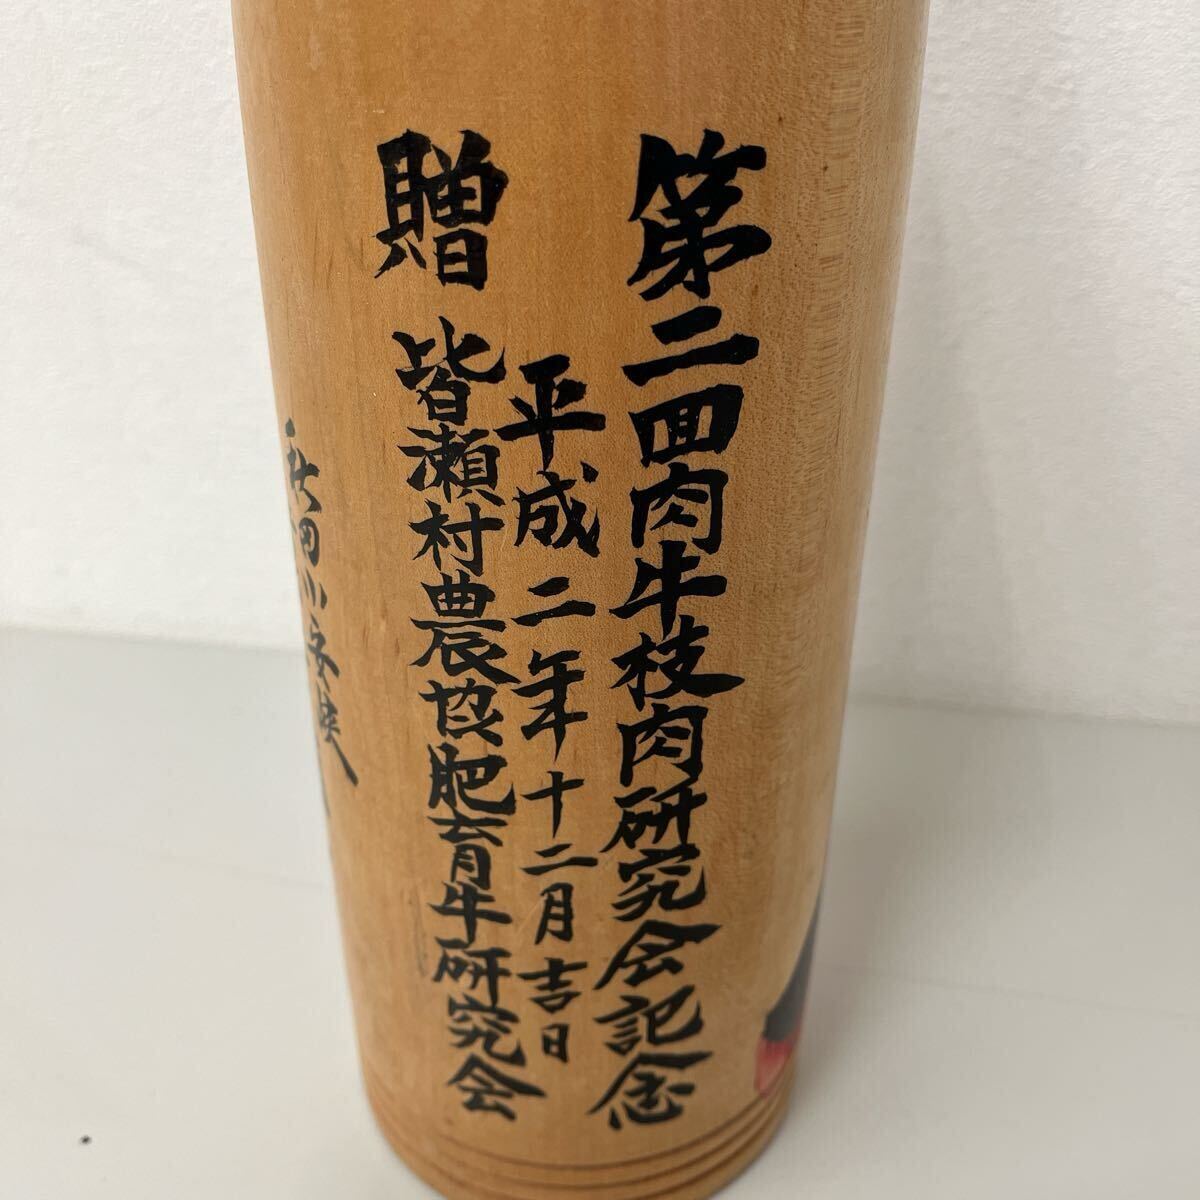 第二回肉牛枝肉研究会記念
平成二年十二月吉日
贈 皆瀬村農協肥育牛研究会
秋田小安峡